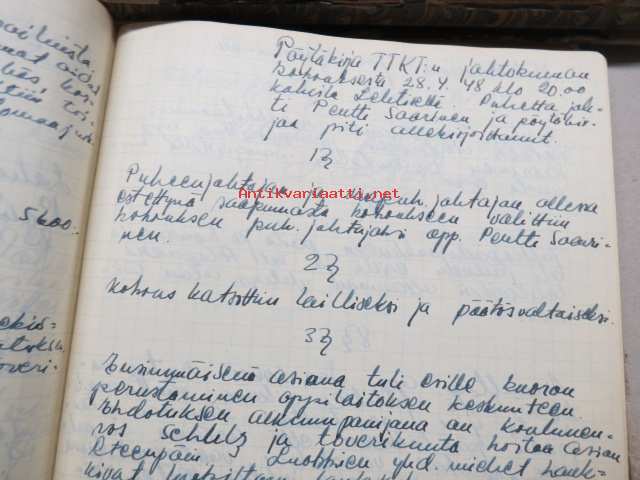 Pöytäkirja TTKT:n johtokunnan
kokouksesta 28.4.48 klo 20.00
kahvila Lehtisellä. Puhetta joh-
ti Pentti Saarinen ja pöytäkir-
jaa piti allekirjoittanut.
1§
Puheenjohtajan ja varapuh.johtajan ollessa
estettynä saapumasta kokoukseen valittiin
kokouksen puh.johtajaksi opp. Pentti Saari-
nen.
2§
Kokous katsottiin lailliseksi ja päätösvaltaiseksi.
3§
Ensimmäisenä asiana tuli esille kuoron
perustaminen oppilaitoksen keskuuteen.
Ehdotuksen alkuunpanijana on
ros ja toverikunta hoitaa asian
eteenpäin. yhd. miehet
5600:-
Antikvariaatti.net